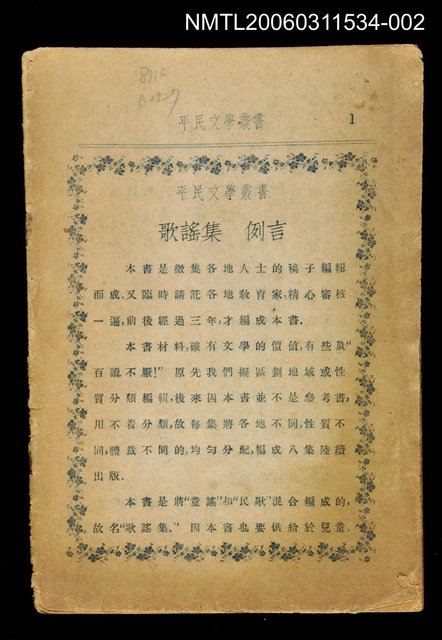 NMTL20060311534-002
平民文學叢書 1
平民文學叢書
歌謠集 例言
本書是徵集各地人士的稿子編輯
而成.又臨時請託各地教育家,精心審核
一遍,前後經過三年,才編成本書.
本書材料,確有文學的價値,有些眞“
百讀不厭!”原先我們擬區劃地域或性
質分類編輯,後來因本書並不是參考書,
用不着分類,故每集將各地不同,性質不
同,體裁不同的,均勻分配,編成八集陸續
出版.
本書是將“童謠”和“民歌”混合編成的,
故名“歌謠集.”因本書也要供給於兒童